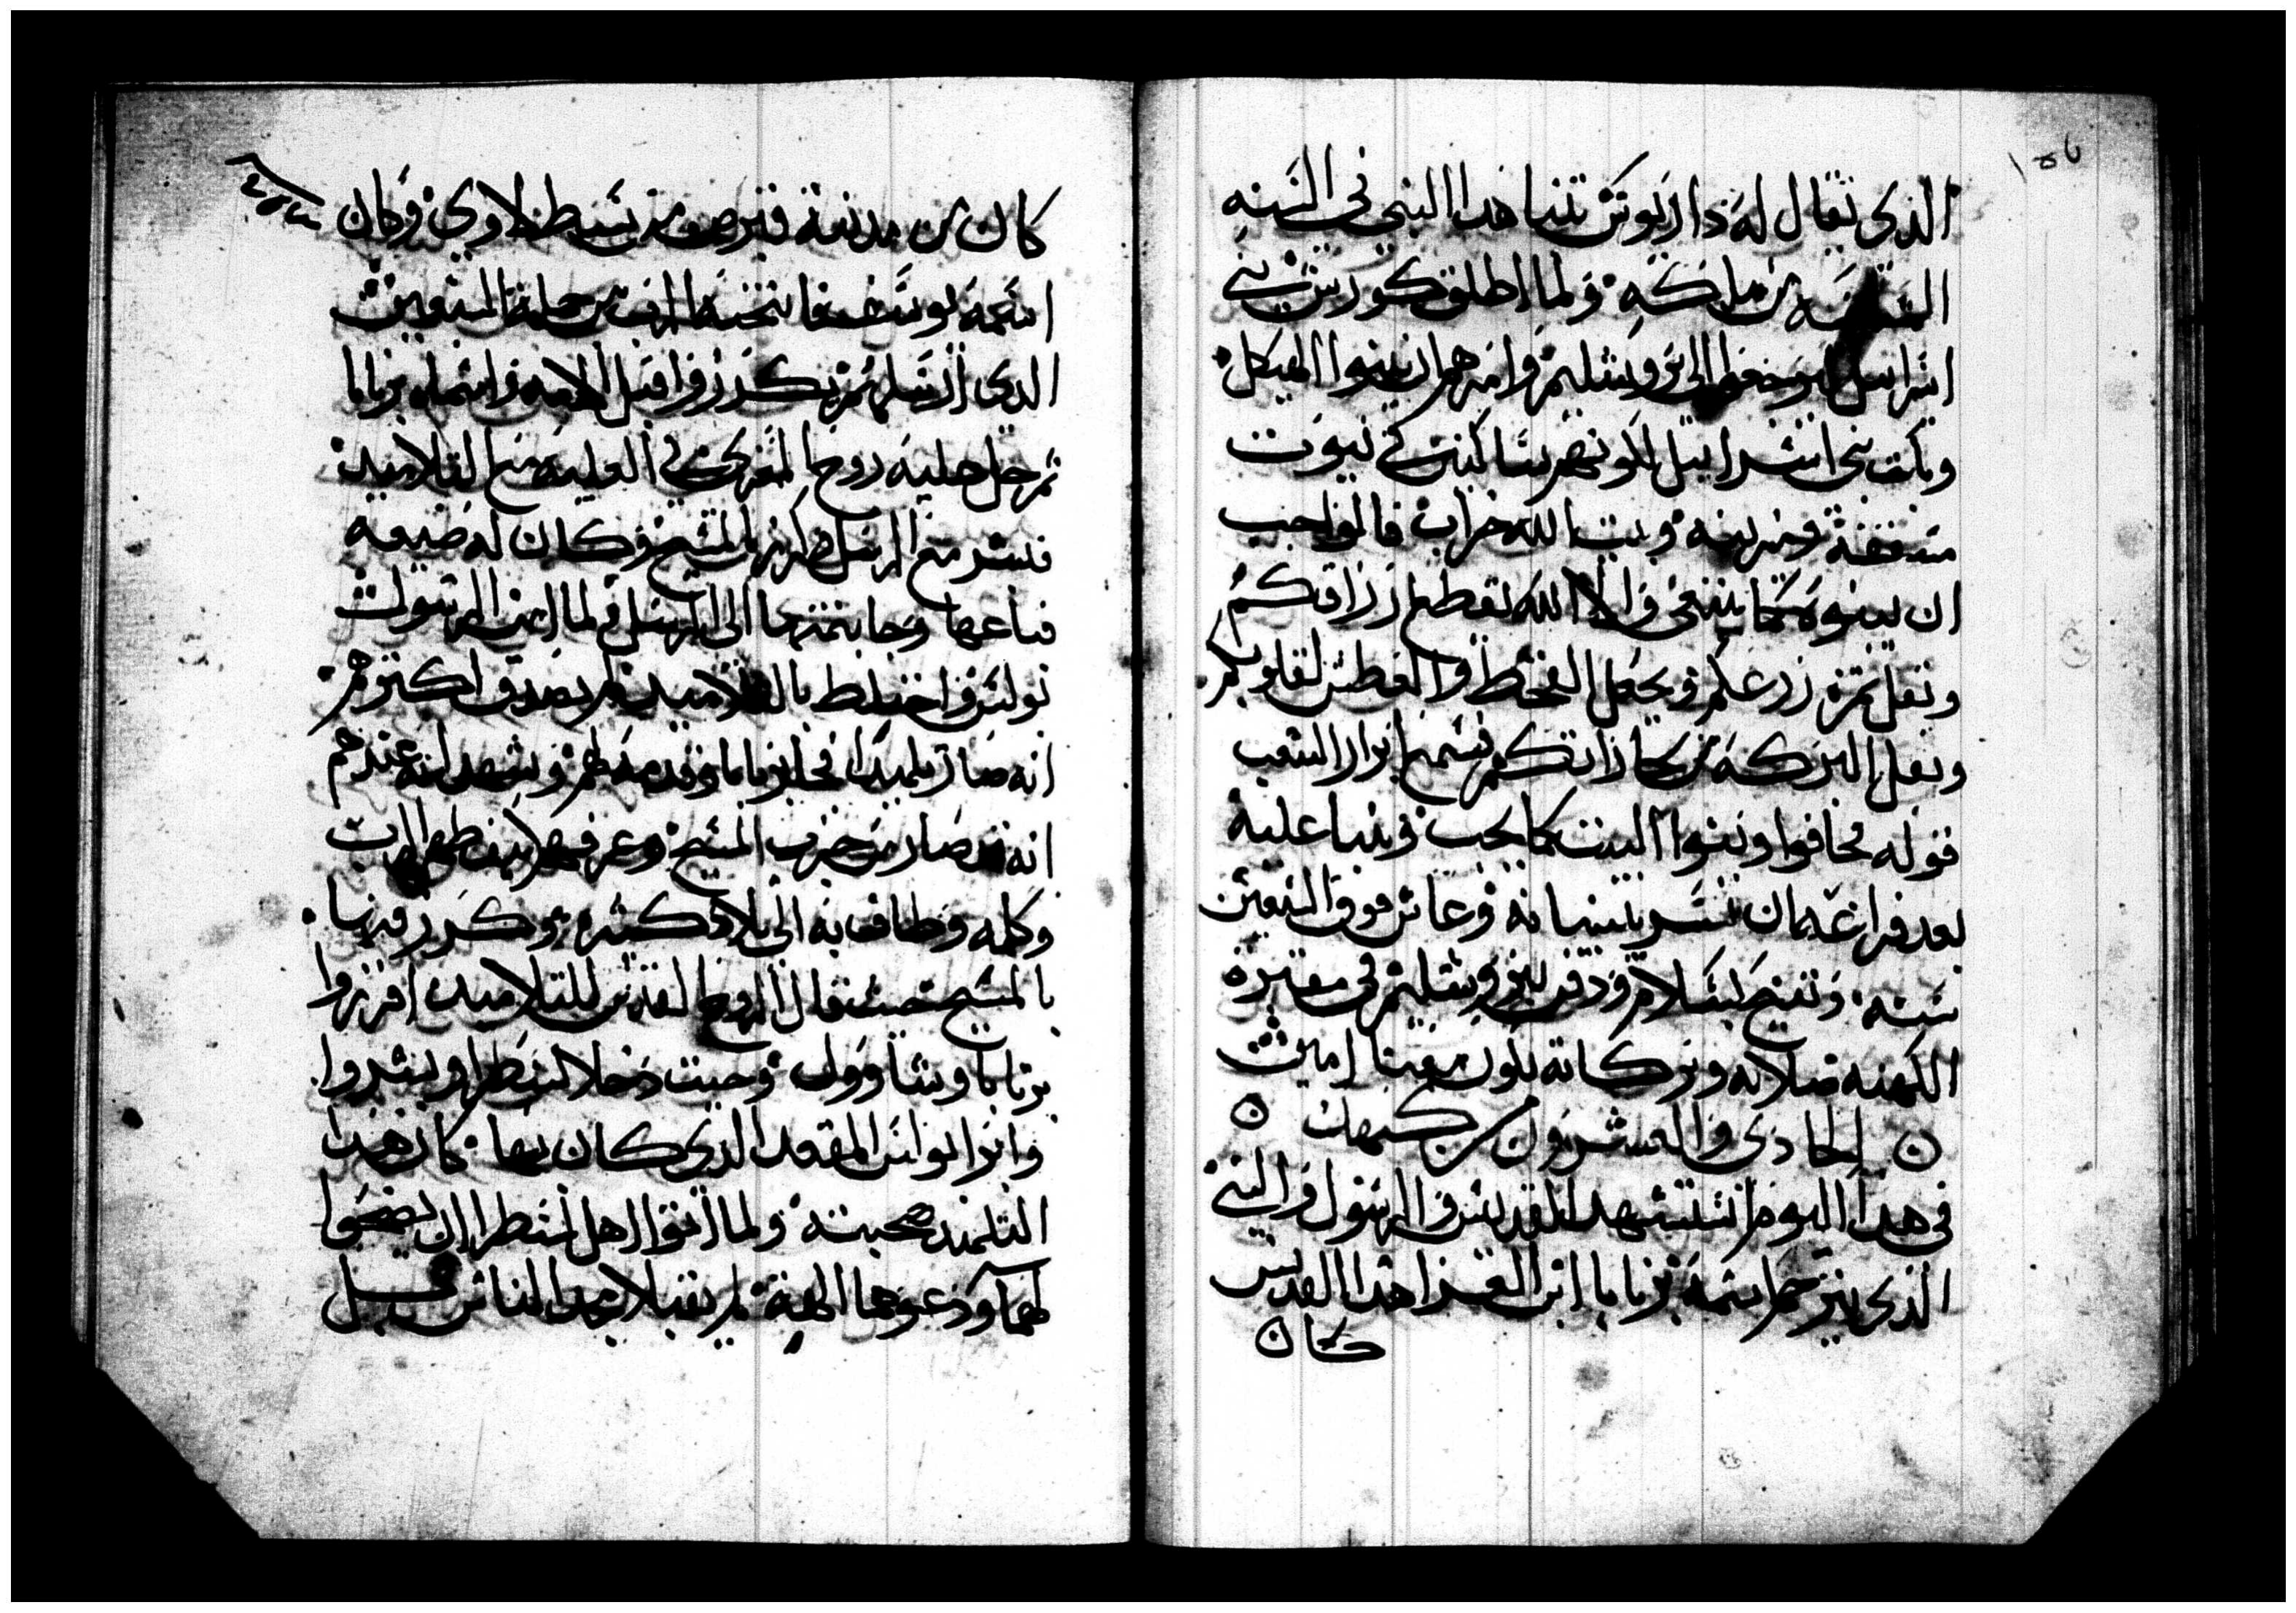 الذى يقال له داريوش تنبا هدا النبي فى السنه
من ملكه ولما اطلق كورش بني
اسراييل يرجعوا الى يروشليم وامرهم ان يبنوا الهيكل
وكانت بني اسراييل يلونهم ساكنين في بيوت
مسقفة ومزينه وبيت الله خراب فالمواجب
ان يبنوه كما ينبغى والا الله يقطع ارزاقكم
ويقل ثمرة زرعكم ويجعل القحط والعطش لقلوبكم
ويقل البركة من مكاناتكم فسمع ابرار الشعب
قوله فخافوا وبنوا البيت كما يجب وتنبا عليه
بعد فراغه ان يبشر ببنيانه وعاش فوق السبعين
سنه وتنيح بسلام ودفن بيروشليم في مقبرة
الكهنه صلاته وبركاته تكون معنا امين
الحادى والعشرون من كيهك
فى هدا اليوم استشهد القديس والرسول والنبى
الذى يترجم اسمه برنابا ابن العزا هدا القديس
كان
كان من مدينة قبرص من سبط لاوي وكان
اسمه يوسف فانتخبه الرب من جملة السبعين
الدى ارسلهم يكرزوا قبل الامه واسماه برنابا
ثم حل عليه روح المعزى في العليه مع التلاميد
فبشر مع الرسل وكرز بالمسيح وكان له ضيعه
فباعها وجا بثمنها الى الرسل ولما امن الرسول
بولس واختلط بالتلاميد لم يصدق اكثرهم
انه صار تلميدا فجا برنابا وقدمه لهم وشهد له عندهم
انه قد صار من حزب المسيح وعرفهم كيف ظهر له الرب
وكلمه وطاف به الى بلاد كثيره وكرز فيها
بالمسيح حيث قال الروح القدس للتلاميد افرزوا
برنابا وشاوول وحيت دخلا لسطرا وبشروا
وابرا بولس المقعد الدى كان بها كان هدا
التلميد صحبته ولما اتوا اهل لسطرا ان يضحوا
لهما ودعوهما الهة لم يقبلا مجد الناس بل